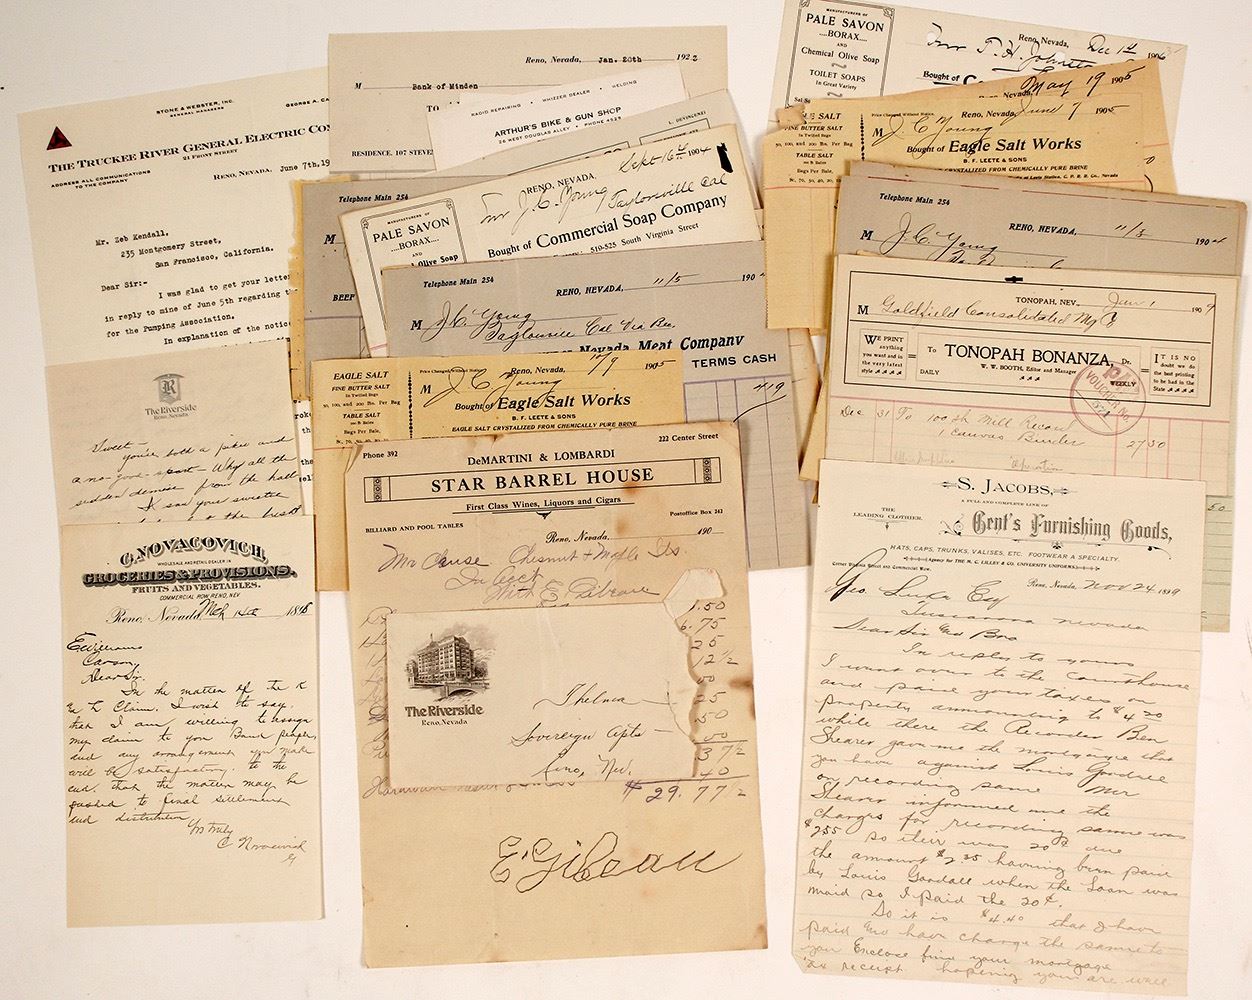 STONE & WEBSTER, INC.
GENERAL MANAGERS
GEORGE A. CA
THE TRUCKEE RIVER GENERAL ELECTRIC COM
21 FRONT STREET
ADDRESS ALL COMMUNICATIONS
TO THE COMPANY
RENO, NEVADA, June 7th, 19
Mr. Zeb Kendall,
235 Montgomery Street,
San Francisco, California.
Dear Sir:-
I was glad to get your letter
in reply to mine of June 5th regarding th
for the Pumping Association.
In explanation of the notic
Reno, Nevada, Jan. 20th 1922
M Bank of Minden
TO
RESIDENCE. 107 STEVE
RADIO REPAIRING · WHIZZER DEALER · WELDING
ARTHUR'S BIKE & GUN SHOP
26 WEST DOUGLAS ALLEY · PHONE 4529
L. DEVINCENZI
Telephone Main 254
M
BEEF
RENO, NEVADA, Sept 16th 1904
MANUFACTURERS OF
PALE SAVON
..BORAX...
AND
l Olive Soap
Mr J. C. Young
Taylorsville Cal
Bought of Commercial Soap Company
510-525 South Virginia Street
Telephone Main 254
RENO, NEVADA, 11/5 190
M J. C. Young
Taylorsville Cal Via Reno
Nevada Meat Company
TERMS CASH
419
EAGLE SALT
FINE BUTTER SALT
In Twilled Bags
50, 100, and 200 lbs. Per Bag
TABLE SALT
Bags Per Bale,
Price Changed Without Notice.
Reno, Nevada, 10/9 1905
M J C Young
Bought of Eagle Salt Works
B. F. LEETE & SONS
EAGLE SALT CRYSTALIZED FROM CHEMICALLY PURE BRINE
MANUFACTURERS OF
PALE SAVON
....BORAX....
AND
Chemical Olive Soap
TOILET SOAPS
In Great Variety
Reno, Nevada, Dec 14 1906
Mr T. H. Johnston
Bought of C
May 19 1905
Nevada,
E SALT
FINE BUTTER SALT
In Twilled Bags
50, 100, and 200 lbs. Per Bag
TABLE SALT
Bags Per Bale,
Price Changed Without Notice.
Reno, Nevada, June 7 1905
M J. C. Young
Bought of Eagle Salt Works
B. F. LEETE & SONS
CRYSTALIZED FROM CHEMICALLY PURE BRINE
of Leete Station, C. P. R. R. Co., Nevada
Telephone Main 254
RENO, NEVADA, 11/8 1904
M J. C. Young
TONOPAH, NEV. Jan 1 1909
M Goldfield Consolidated M Co
WE PRINT
anything
you want and in
the very latest
style
To TONOPAH BONANZA, Dr.
W. W. BOOTH, Editor and Manager
DAILY
WEEKLY
IT IS NO
doubt we do
the best printing
to be had in
the State
VOUCHER No.
Dec 31 To 100 sh Mill Record
1 Canvas Binder 27 50
The Riverside
Reno, Nevada
Sweet-
you're both a piker and
a no-good-sport- Why all the
sudden demise from the hall
I saw your sweetie
G. NOVACOVICH,
WHOLESALE AND RETAIL DEALER IN
GROCERIES & PROVISIONS.
FRUITS AND VEGETABLES.
COMMERCIAL ROW, RENO, NEV
Reno, Nevada, Mch 14th 1898
E Williams
Carson,
Dear Sir.
In the matter of the K
Claim. I wish to say,
that I am willing to assign
my claim to you people
and any arrangement you make
will be satisfactory to the
end, that the matter may be
pushed to final settlement
and distribution
Yrs truly
C Novacovich
Phone 392
222 Center Street
DEMARTINI & LOMBARDI
STAR BARREL HOUSE
First Class Wines, Liquors and Cigars
BILLIARD AND POOL TABLES
Postoffice Box 243
Reno, Nevada, 190
Mr Cause Chesnut + Maple Sts
In acct
With E Gibeau
.50
6.75
25
12½
00
25
.50
.00
.37½
.40
$ 29.77½
E Gibeau
The Riverside
Reno, Nevada
Thelma
Sovereign Apts -
Reno, Nev.
S. JACOBS,
A FULL AND COMPLETE LINE OF
THE
LEADING CLOTHIER.
Gent's Furnishing Goods,
HATS, CAPS, TRUNKS, VALISES, ETC. FOOTWEAR A SPECIALTY.
Agency for THE M. C. LILLEY & CO. UNIVERSITY UNIFORMS
Corner Virginia Street and Commercial Row.
Reno, Nevada, Nov 24 1899
Geo. Esq
Tuscarora Nevada
Dear Sir and Bro
In reply to yours
I went over to the Courthouse
and paid your taxes on
property amounting to $4 20
while there the Recorder Ben
Shearer gave me the mortgage that
you have against Louis Goodall
on recording same Mr
Shearer informed me the
charges for recording same was
$2 55 so their was 20¢ due
the amount $2.35 having been paid
by Louis Goodall when the Loan was
maid so I paid the 20¢.
So it is $4.40 that I have
paid and have charge the same to
you Enclose find your mortgage
Tax receipt hopeing you are well